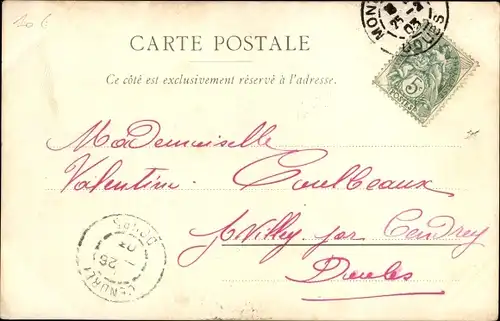 20 6
MON
25 -2
03
DOUBS
CARTE POSTALE
Ce côté est exclusivement réservé à l'adresse.
5
POSTES
Mademoiselle
Valentine Coulbeaux
par Cendrey
Doubs
DOUBS
03
26
CENDREY